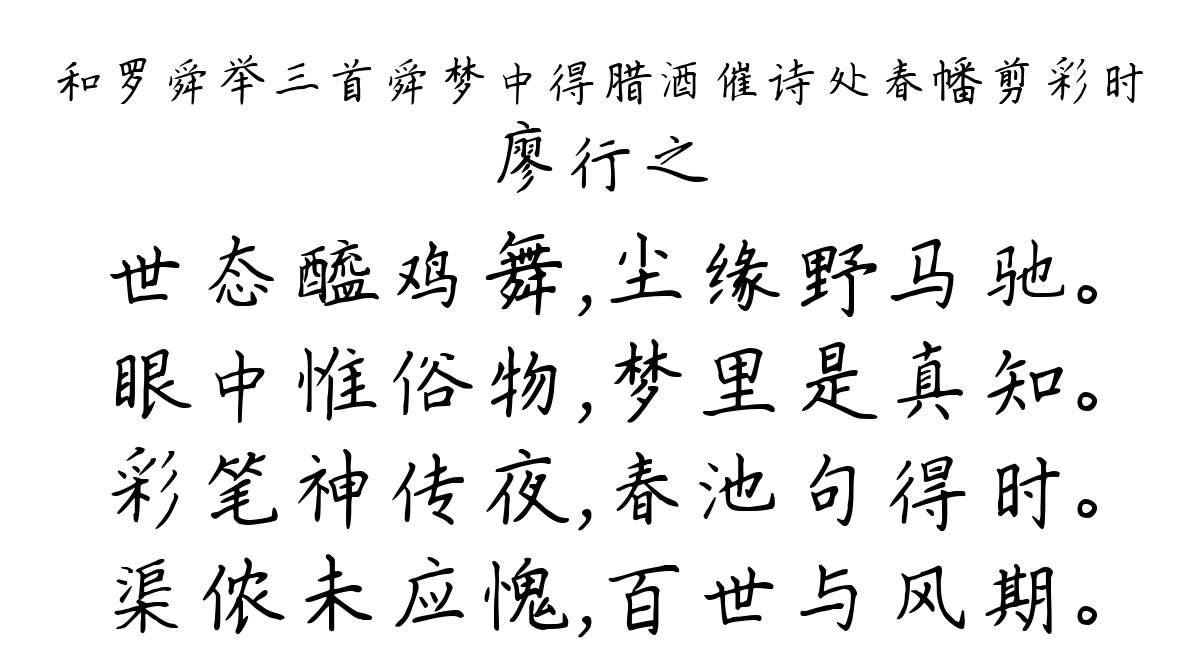 和罗舜举三首舜梦中得腊酒催诗处春幡剪彩时
廖行之
世态醯鸡舞,尘缘野马驰。
眼中惟俗物,梦里是真知。
彩笔神传夜,春池句得时。
渠侬未应愧,百世与风期。